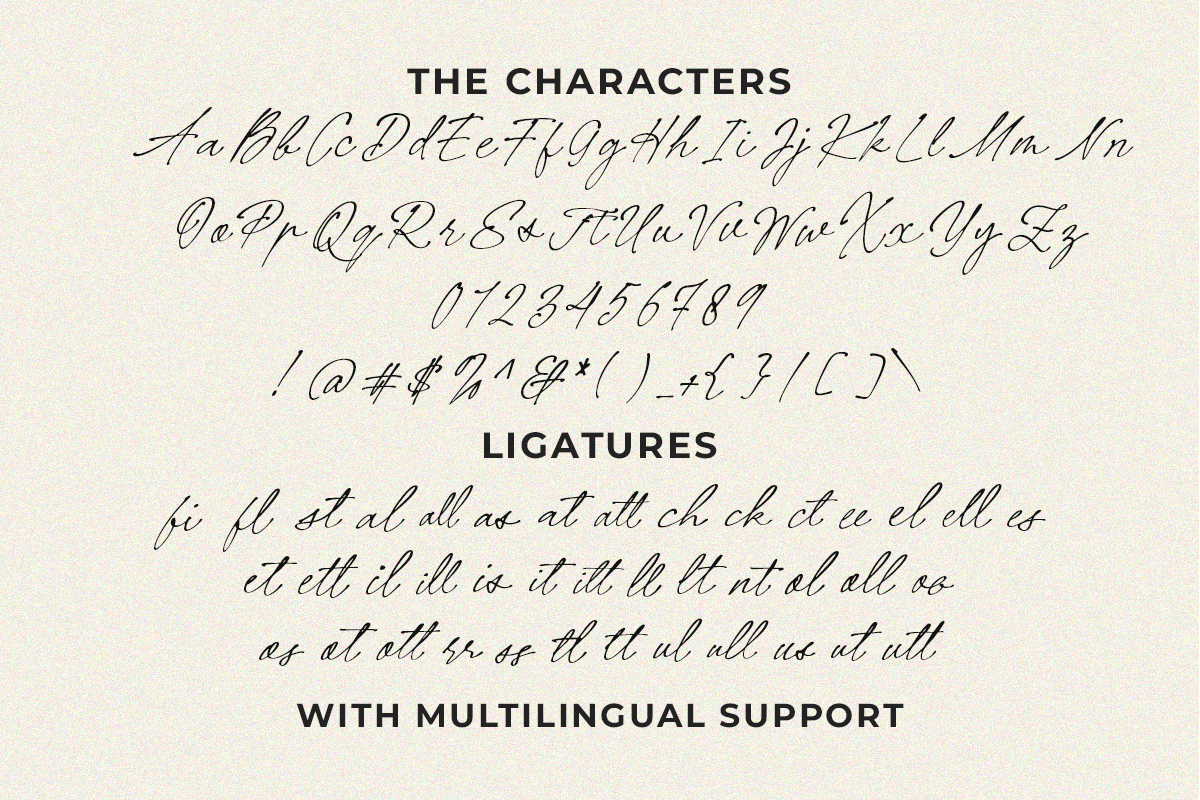 THE CHARACTERS
Aa Bb Cc Dd Ee Ff Gg Hh Ii Jj Kk Ll Mm Nn
Oo Pp Qq Rr Ss Tt Uu Vv Ww Xx Yy Zz
0 1 2 3 4 5 6 7 8 9
! @ # $ % ^ & * ( ) _ + { } / [ ] \
LIGATURES
fi fl st al all as at att ch ck ct ee el ell es
et ett il ill is it itt ll lt nt ol oll oo
os ot ott rr ss tl tt ul ull us ut utt
WITH MULTILINGUAL SUPPORT